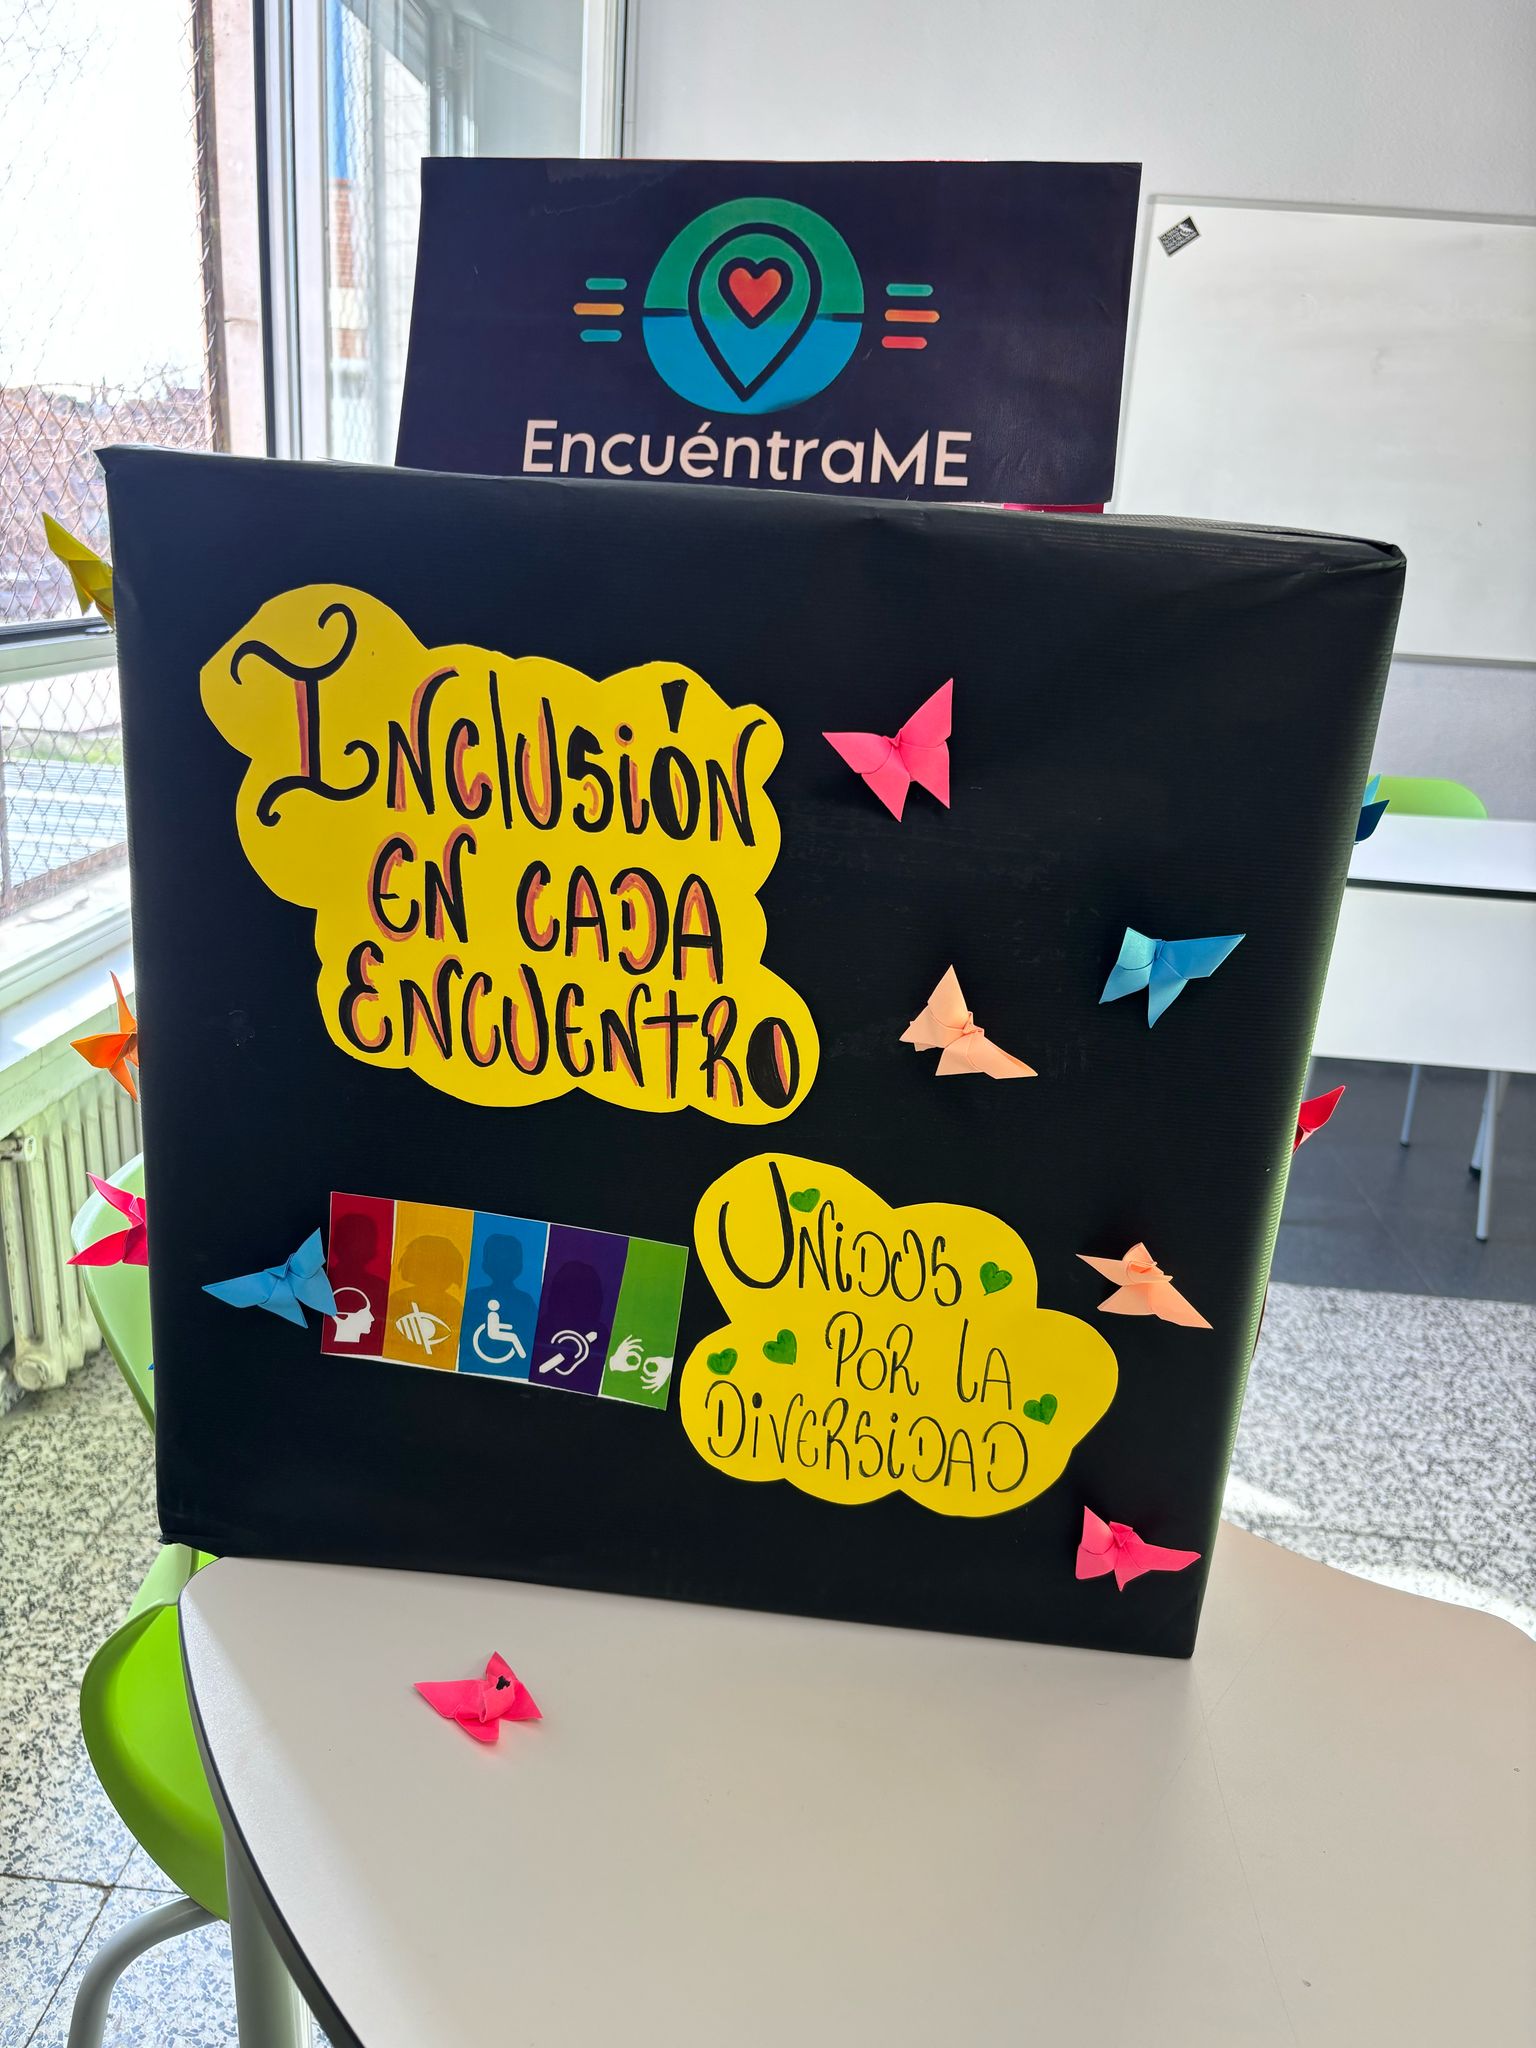 EncuéntraME
INCLUSIÓN
EN CADA
ENCUENTRO
UNIDOS
POR LA
DIVERSIDAD